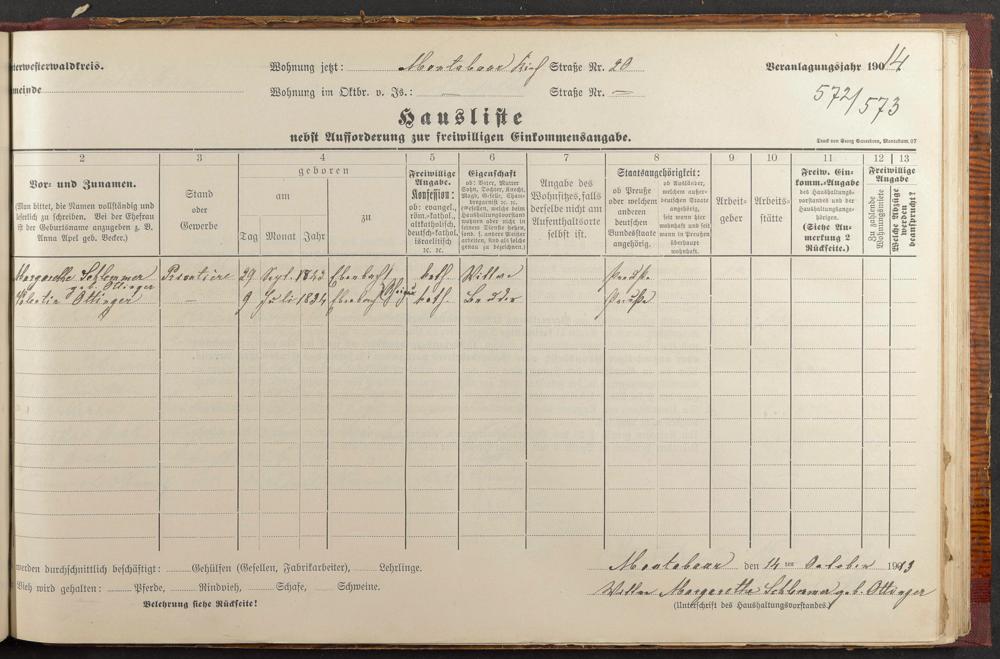 terwesterwaldkreis.
Wohnung jetzt: Montabaur Kirch Straße Nr. 20
Veranlagungsjahr 1914
meinde
Wohnung im Oktbr. v. Js.: — Straße Nr. —
572/573
Hausliste
nebst Aufforderung zur freiwilligen Einkommensangabe.
Druck von Georg Sauerborn, Montabaur. 07
2 3 4 5 6 7 8 9 10 11 12 13
Vor- und Zunamen.
(Man bittet, die Namen vollständig und
leserlich zu schreiben. Bei der Ehefrau
ist der Geburtsname anzugeben z. B.
Anna Apel geb. Becker.)
Stand
oder
Gewerbe
geboren
am
zu
Tag Monat Jahr
Freiwillige
Angabe.
Konfession:
ob: evangel.,
röm.-kathol.,
altkatholisch,
deutsch-kathol.
israelitisch
ꝛc. ꝛc.
Eigenschaft
ob: Vater, Mutter
Sohn, Tochter, Knecht,
Magd, Geselle, Cham-
bregarnist ꝛc. ꝛc.
(Gesellen, welche beim
Haushaltungsvorstand
wohnen aber nicht in
seinem Dienste stehen,
sond. f. andere Meister
arbeiten, sind als solche
genau zu bezeichnen.)
Angabe des
Wohnsitzes, falls
derselbe nicht am
Aufenthaltsorte
selbst ist.
Staatsangehörigkeit:
ob Preuße
oder welchem
anderen
deutschen
Bundesstaate
angehörig.
ob Ausländer,
welchem außer-
deutschen Staate
angehörig,
seit wann hier
wohnhaft und seit
wann in Preußen
überhaupt
wohnhaft.
Arbeit-
geber
Arbeits-
stätte
Freiw. Ein-
komm.-Angabe
des Haushaltungs-
vorstandes und der
Haushaltungsange-
hörigen.
(Siehe An-
merkung 2
Rückseite.)
Freiwillige
Angabe
Zu zahlende
Wohnungsmiete
Welche Abzüge
werden
beansprucht?
Margarethe Schlemmer Privatière 29 Sept. 1842 Ebernhahn kath. Wittwe Preuße
geb. Ottinger
Valentin Ottinger — 9 Juli 1834 kath. Bruder Preuße
werden durchschnittlich beschäftigt: Gehülfen (Gesellen, Fabrikarbeiter), Lehrlinge.
Vieh wird gehalten: Pferde, Rindvieh, Schafe, Schweine.
Belehrung siehe Rückseite!
Montabaur den 14ten October 1913
Wittwe Margaretha Schlemmer geb. Ottinger
(Unterschrift des Haushaltungsvorstandes.)